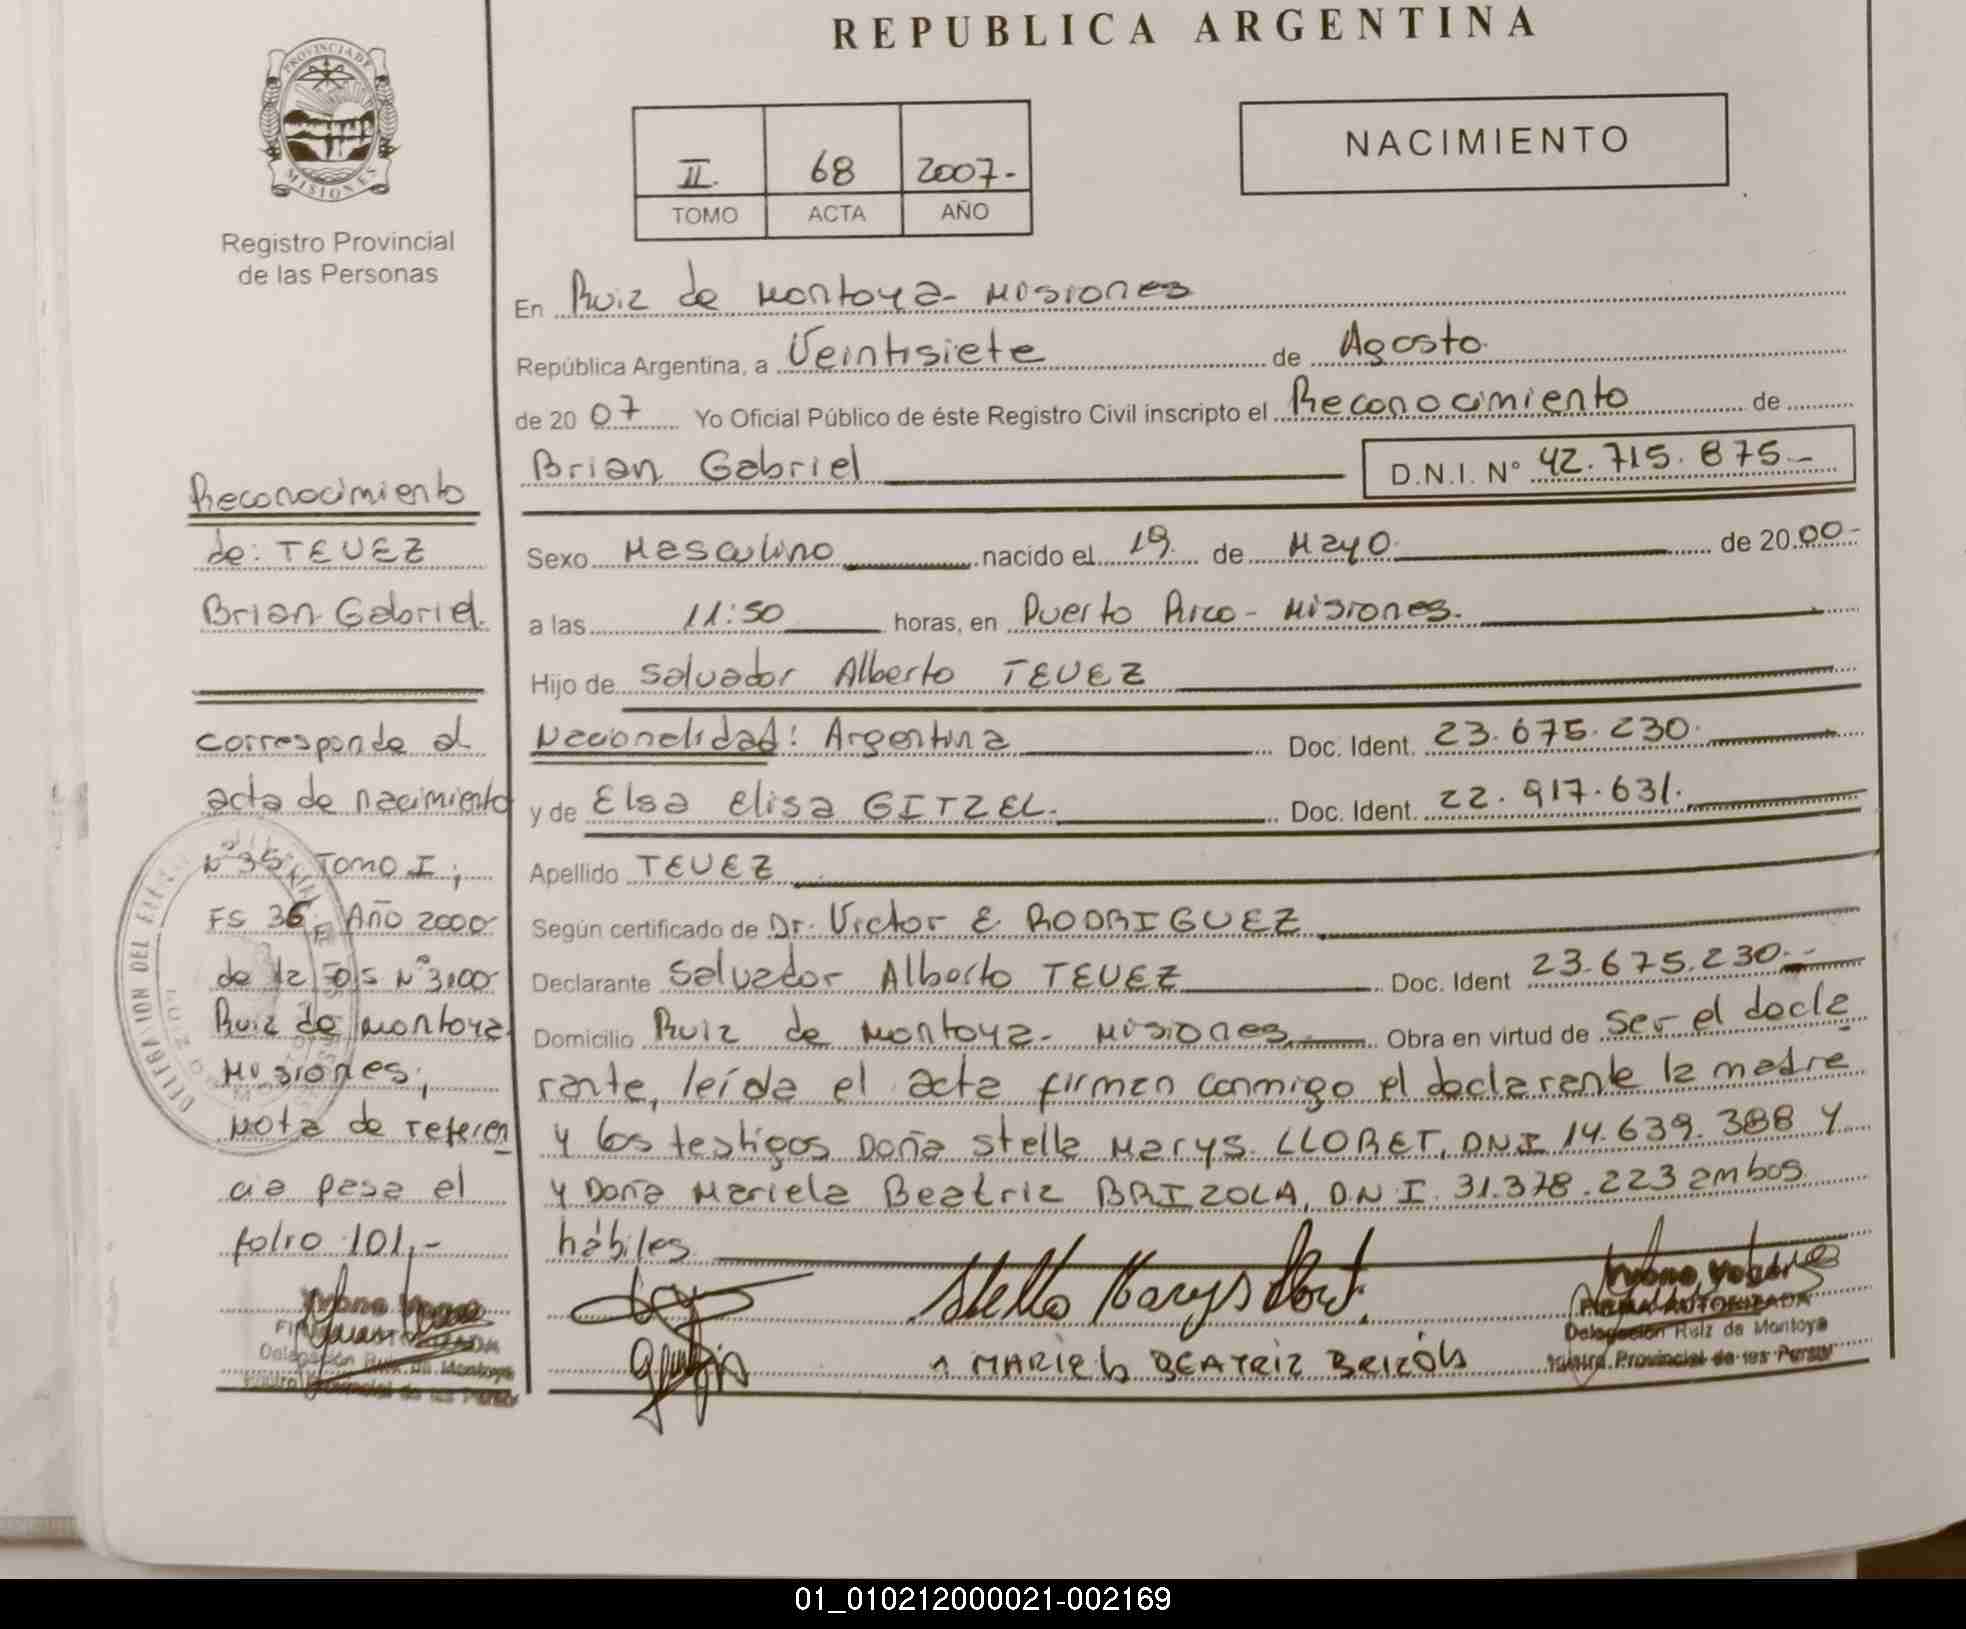 REPUBLICA ARGENTINA
PROVINCIA DE
MISIONES
Registro Provincial
de las Personas
II. 68 2007-
TOMO ACTA AÑO
NACIMIENTO
En Ruiz de Montoya - Misiones
República Argentina, a Veintisiete de Agosto
de 20 07 Yo Oficial Público de éste Registro Civil inscripto el Reconocimiento de
Brian Gabriel D.N.I. N° 42.715.875-
Sexo Masculino nacido el 19 de Mayo de 20 00-
a las 11:50 horas, en Puerto Rico - Misiones.
Hijo de Salvador Alberto TEVEZ
Nacionalidad: Argentina Doc. Ident. 23.675.230.
y de Elsa Elisa GITZEL. Doc. Ident. 22.917.631.
Apellido TEVEZ
Según certificado de Dr. Victor E RODRIGUEZ
Declarante Salvador Alberto TEVEZ Doc. Ident 23.675.230.-
Domicilio Ruiz de Montoya - Misiones Obra en virtud de ser el decla
rante, leída el acta firman conmigo el declarante la madre
y los testigos Doña Stella Marys LLORET, DNI 14.639.388 y
y Doña Mariela Beatriz BRIZOLA, D.N.I. 31.378.223 ambos
hábiles
Stella Marys Lloret.
MARIELA BEATRIZ BRIZOLA
FIRMA AUTORIZADA
Delegación Ruiz de Montoya
Provincial de las Person
Reconocimiento
de: TEVEZ
Brian Gabriel.
corresponde al
acta de nacimiento
N° 35, Tomo I;
FS 36, Año 2000
de la
Ruiz de Montoya
Misiones;
Nota de referen
cia pasa el
folio 101,-
Delegación Ruiz de Montoya
Provincial de las Person
01_010212000021-002169